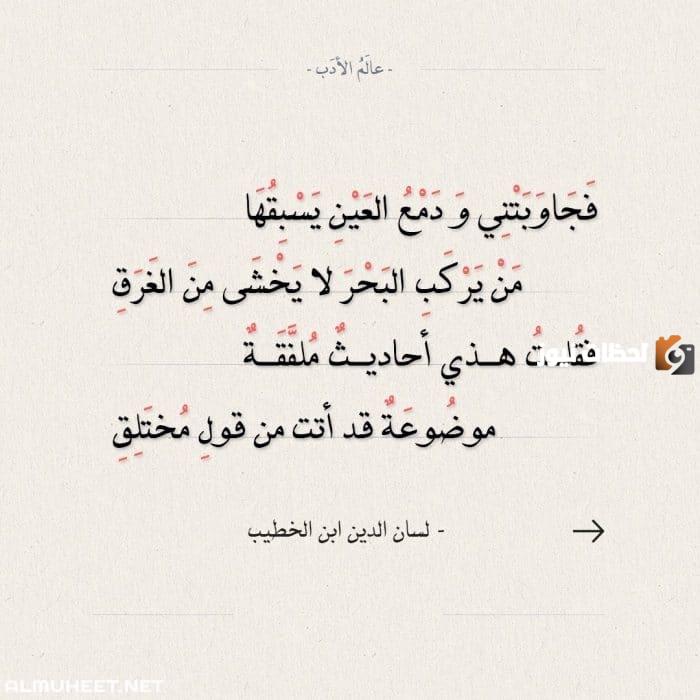 - عالَمُ الأدَب -
فَجَاوَبَتْنِي وَ دَمْعُ العَيْنِ يَسْبِقُهَا
مَنْ يَرْكَبِ البَحْرَ لا يَخْشَى مِنَ الغَرَقِ
فقُلتُ هـذي أحاديـثٌ مُلفَّقَـةٌ
لحظات نيوز
موضُوعَةٌ قد أتت من قولِ مُختَلِقِ
- لسان الدين ابن الخطيب
ALMUHEET.NET